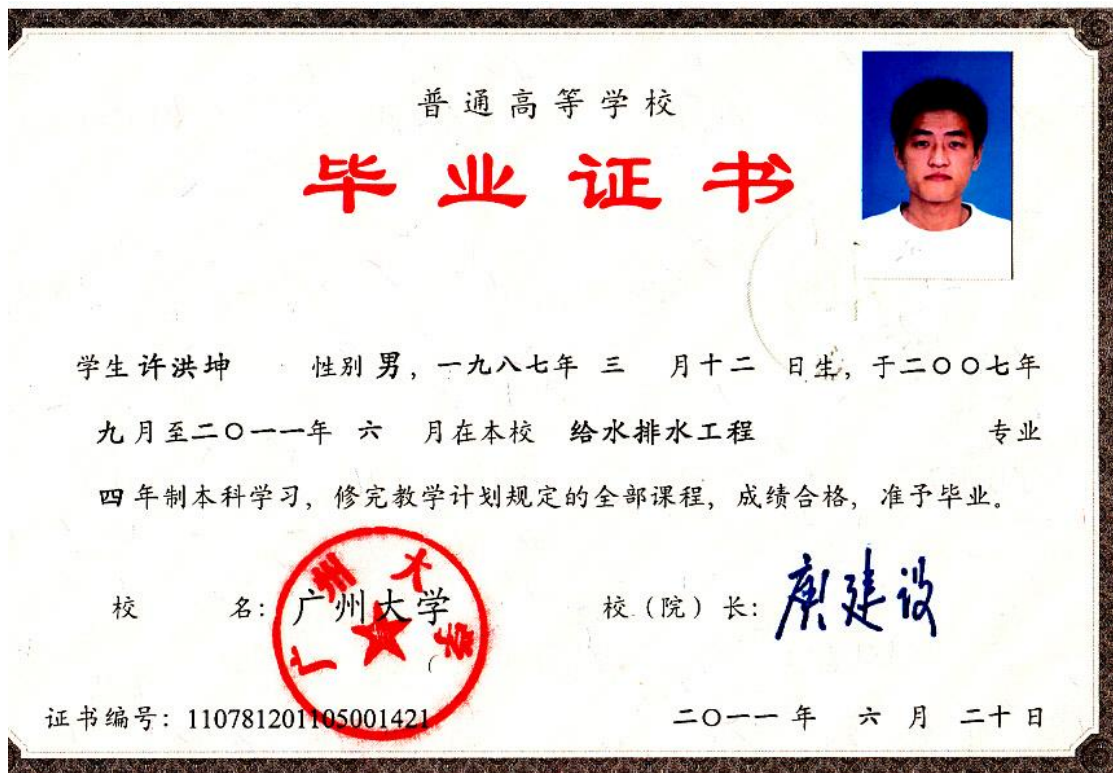 普通高等学校
毕业证书
学生许洪坤 性别男，一九八七年 三 月十二 日生，于二〇〇七年
九月至二〇一一年 六 月在本校 给水排水工程 专业
四年制本科学习，修完教学计划规定的全部课程，成绩合格，准予毕业。
校 名：广州大学 校（院）长：庾建设
广州大学
证书编号：110781201105001421 二〇一一 年 六 月 二十 日